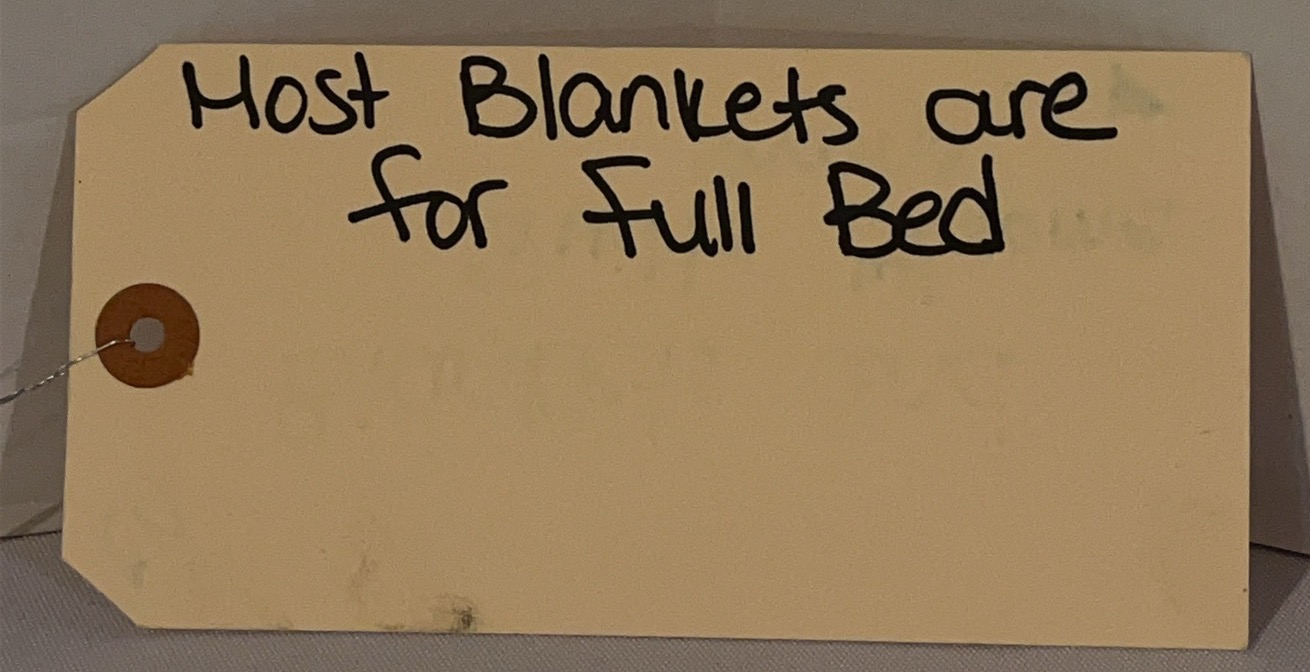 Most Blankets are
for Full Bed